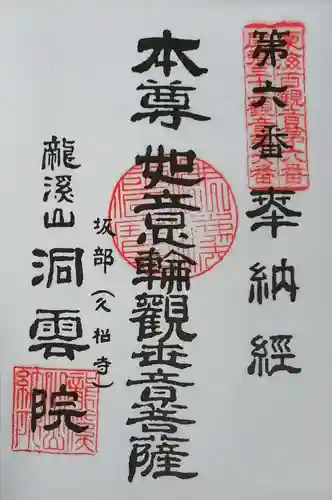 第六番奉納経
本尊如意輪觀世音菩薩
坂部（久松寺）
龍溪山洞雲院